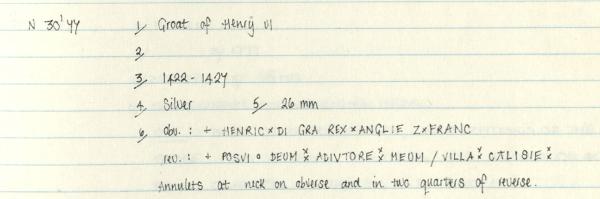 N 30' YY 1, Groat of Henry VI
2,
3, 1422 - 1427
4, Silver 5, 26 mm
6, obv. : + HENRIC × DI GRA REX × ANGLIE Z × FRANC
rev. : + POSVI ∘ DEUM × ADIVTORE × MEUM / VILLA × CALISIE ×
Annulets at neck on obverse and in two quarters of reverse.